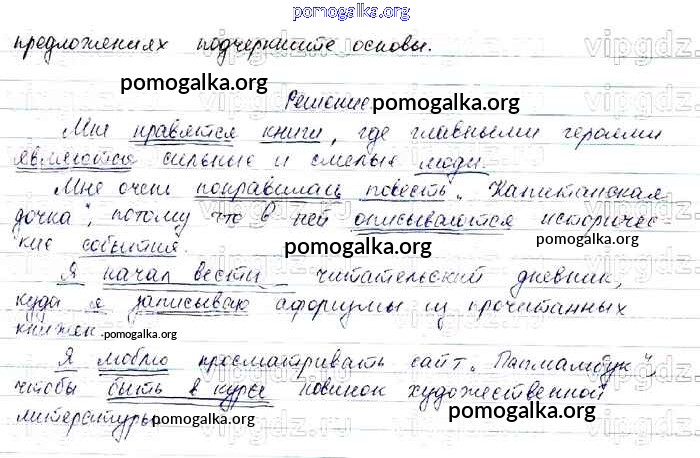 pomogalka.org
предложениях подчеркните основы.
pomogalka.org
Решение pomogalka.org
Мне нравятся книги, где главными героями
являются сильные и смелые люди.
Мне очень понравилась повесть „Капитанская
дочка", потому что в ней описываются историчес-
кие события. pomogalka.org
pomogalka.org
Я начал вести читательский дневник,
куда я записываю афоризмы из прочитанных
книжек pomogalka.org
Я люблю просматривать сайт „Папмамбук",
чтобы быть в курсе новинок художественной
литературы pomogalka.org
pomogalka.org
vipgdz.ru